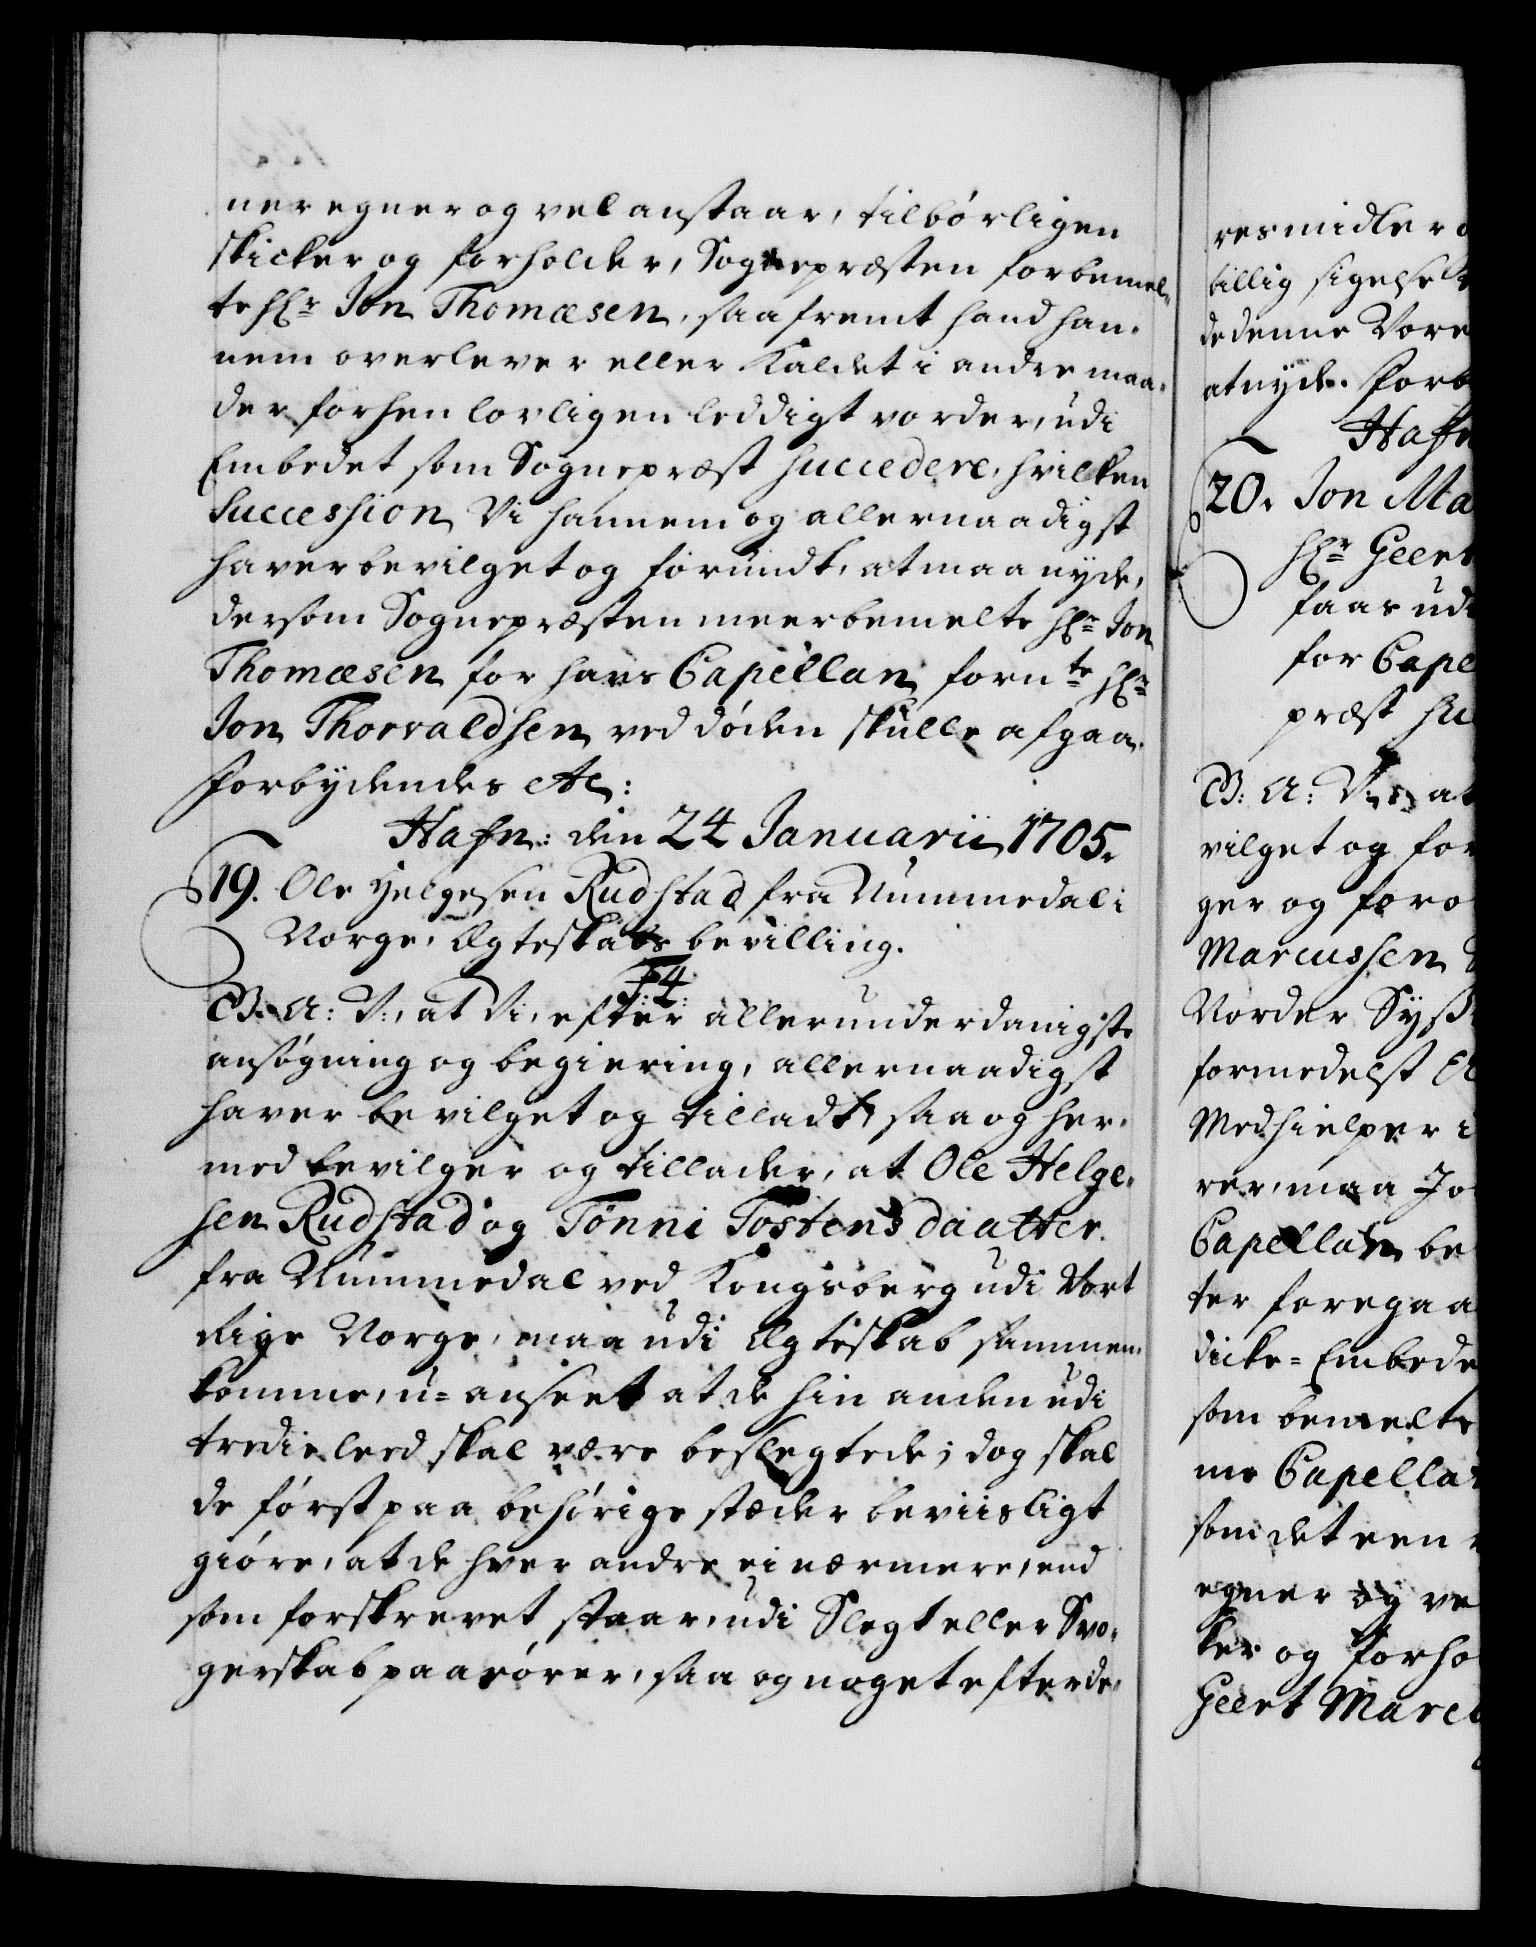 ner egner og vel anstaar, tilbørligen
skicker og forholder, Sognepræsten forbemel-
te Hr. Jon Thomæsen, saafremt hand han-
nem overlever eller Kaldet i andre maa-
der forhen lovligen leddigt vorder, udi
Embedet som Sognepræst succedere, hvilken
Succession Vi hannem og allernaadigst
haver bevilget og forundt, at maa nyde,
dersom Sognepræsten meerbemelte Hr. Jon
Thomæsen for hans Capellan forn.te Hr.
Jon Thorvaldsen ved døden skulle afgaa.
Forbydendes etc:
Hafn: den 24 Januarii 1705.
19. Ole Helgesen Rudstad fra Nummedal i
Norge, Ægteskabs bevilling.
F:4.
G. A: V:, at Vi, efter allerunderdanigste
ansøgning og begiering, allernaadigst
haver bevilget og tilladt, saa og her-
med bevilger og tillader, at Ole Helge-
sen Rudstad og Tønni Tostensdaatter
fra Nummedal ved Kongsberg udi Vort
Rige Norge, maa udi Ægteskab sammen-
komme, u=anseet at de hin anden udi
tredie leed skal være beslegtede; dog skal
de først paa behørige stæder beviisligt
giøre, at de hver andre ei nærmere, end
som forskrevet staar, udi Slegt eller Svo-
gerskab paarører, saa og noget efter de-
resmidler o
billig sigelse
de denne Vore
at nyde. Forb
Hafn
20. Jon Ma
Hr. Geert
faar udi
for Cape
præst su
G: A: V:, at
vilget og for
ger og foro
Marcussen
Norder Syß
formedelst
Medhielper i
rer, maa Jo
Capellan be
ter foregaa
dicke=Embede
som bemelte
me Capella
som det een
egner og ve
ker og forho
Geert Marcu